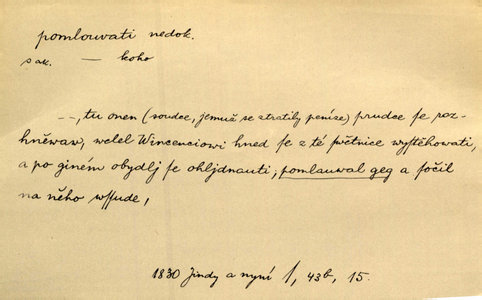 pomlouvati nedok.
sak. — koho
--, tu onen (soudce, jemuž se ztratily peníze) prudce se roz-
hněwaw, welel Wincenciowi hned se z té swětnice wystěhowati,
a po giném obydlj se ohljdnauti; pomlauwal geg a sočil
na něho wssude,
1830 Jindy a nyní I, 43b, 15.